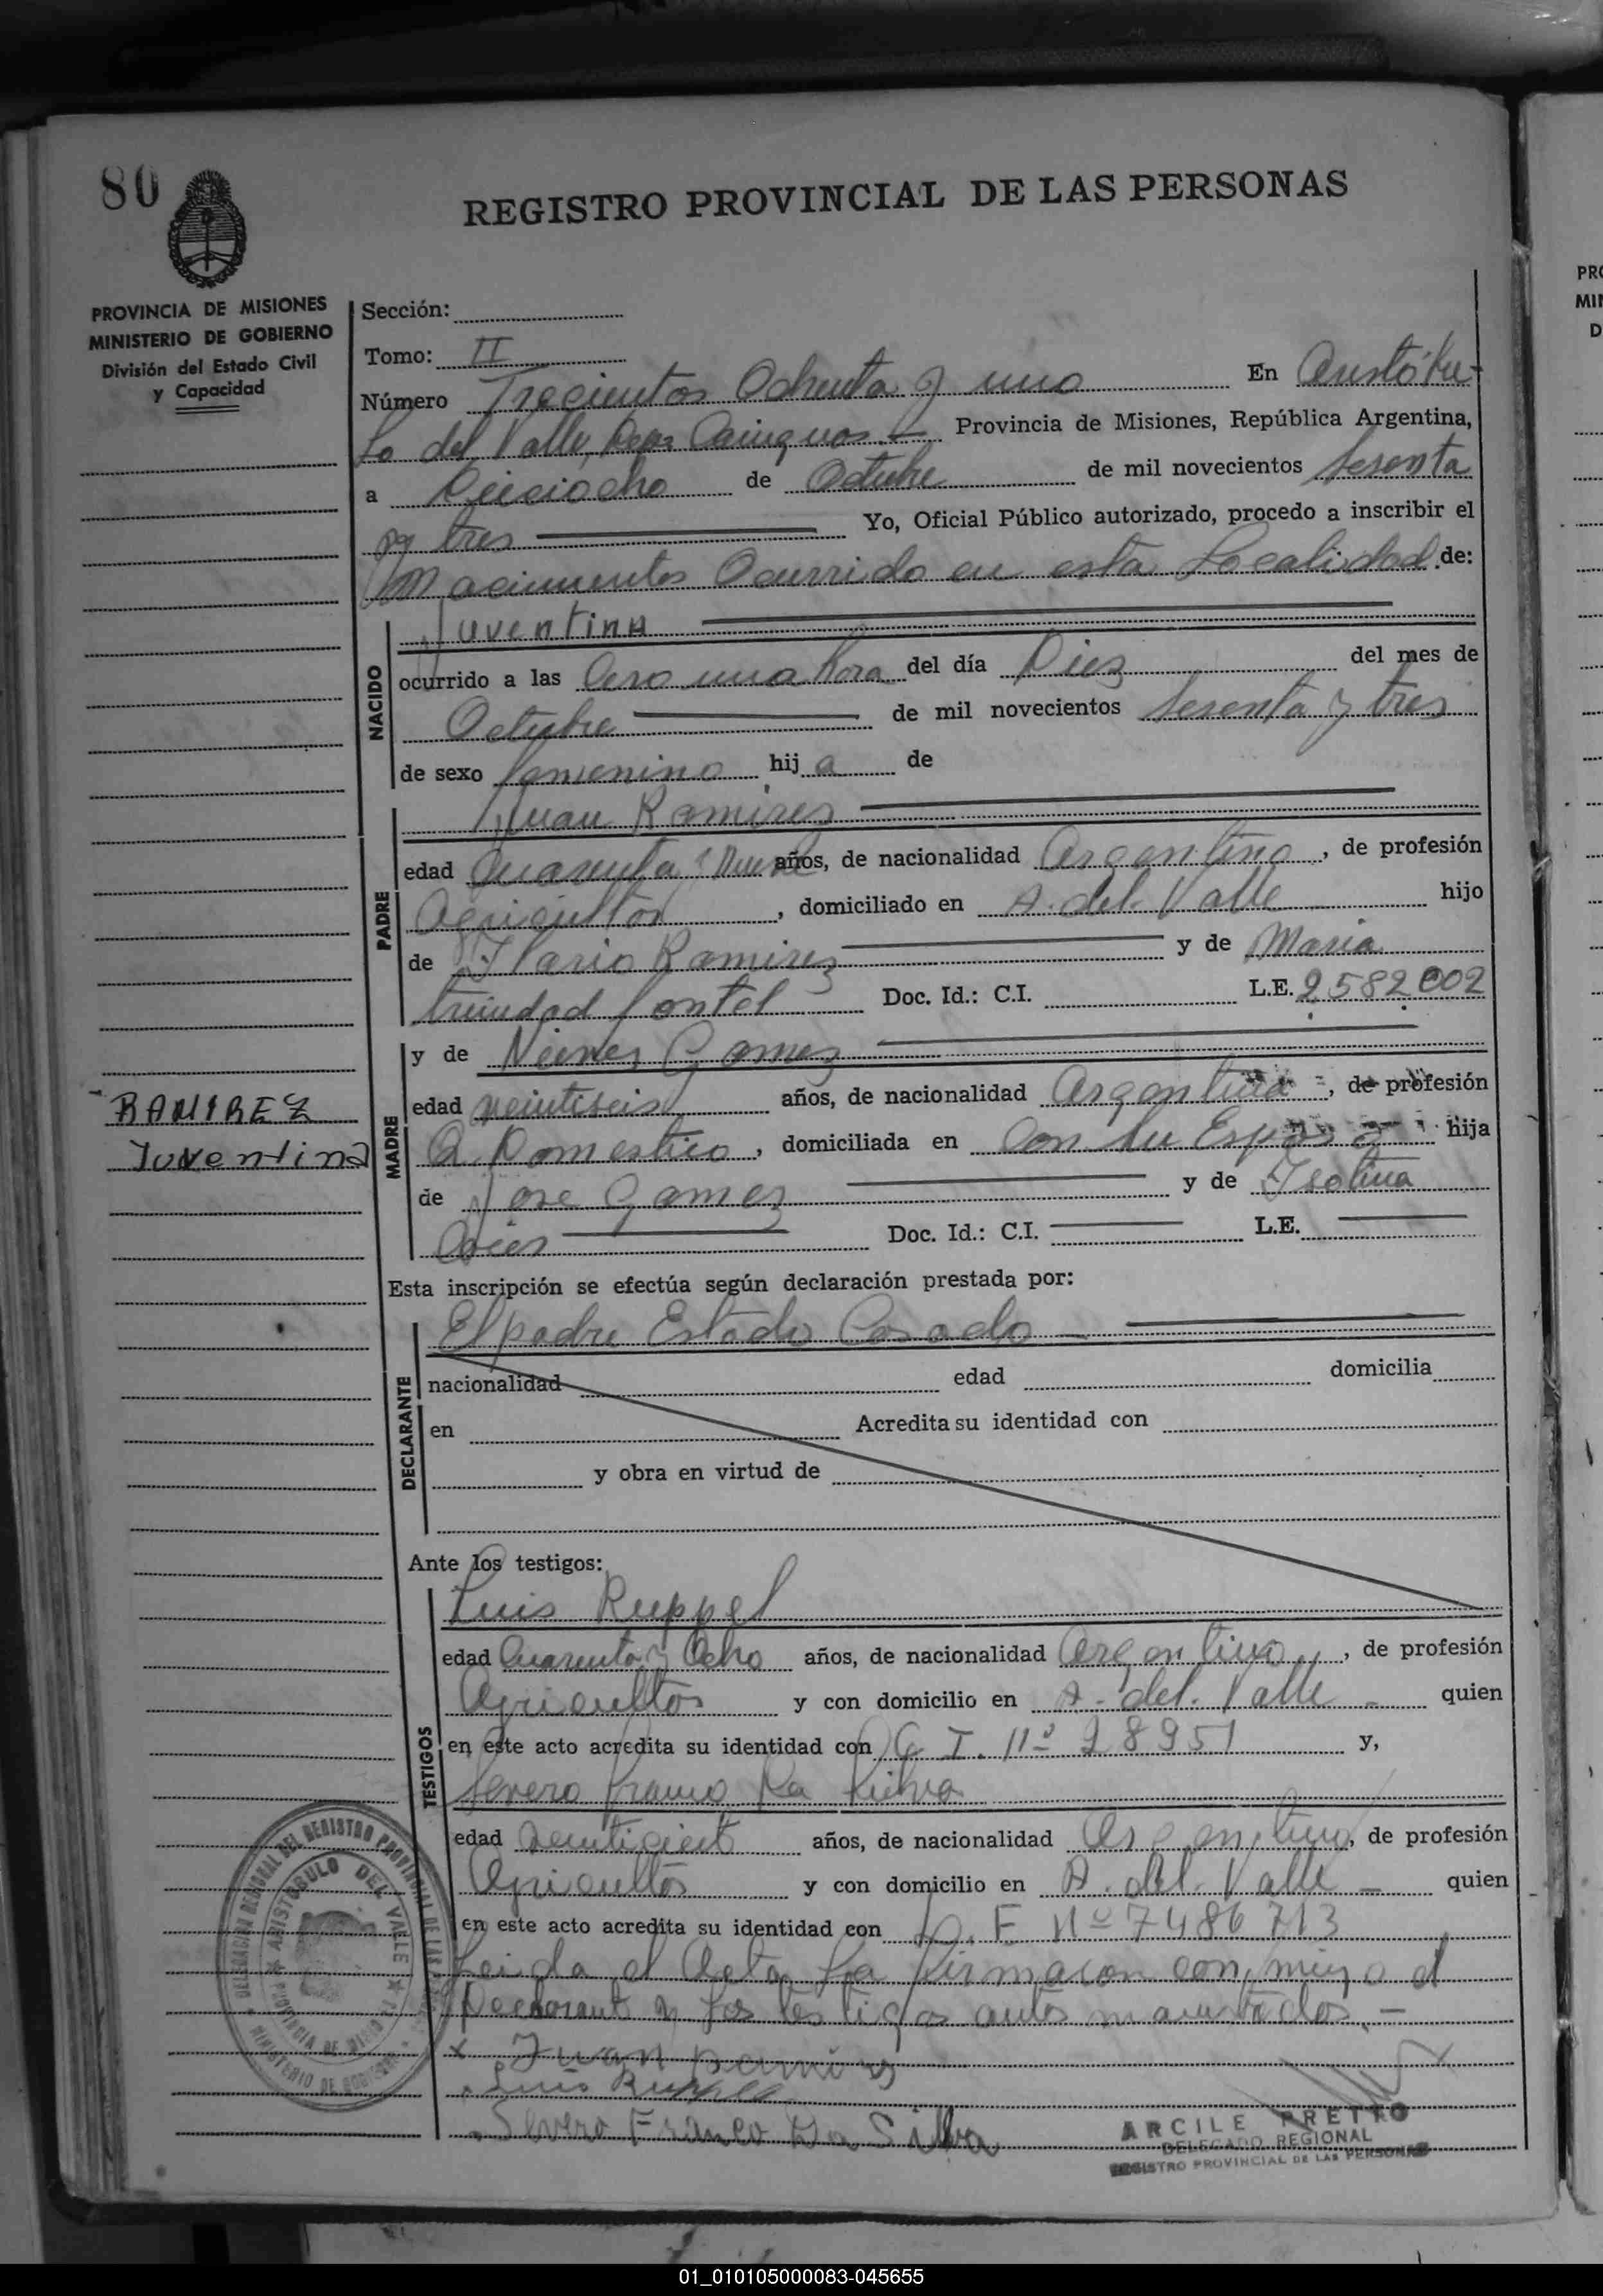 80
REGISTRO PROVINCIAL DE LAS PERSONAS
PROVINCIA DE MISIONES
MINISTERIO DE GOBIERNO
División del Estado Civil
y Capacidad
Sección:
Tomo: II
Número Trecientos Ochenta y uno En Aristóbu-
lo del Valle, Dep. Cainguas.- Provincia de Misiones, República Argentina,
a Dieciocho de Octubre de mil novecientos sesenta
y tres Yo, Oficial Público autorizado, procedo a inscribir el
nacimiento Ocurrido en esta Localidad de:
NACIDO
Juventina
ocurrido a las Cero una hora del día Diez del mes de
Octubre de mil novecientos sesenta y tres
de sexo femenino hij a de
PADRE
Juan Ramires
edad Cuarenta y Nueve años, de nacionalidad Argentino, de profesión
Agricultor, domiciliado en A. del Valle hijo
de Ilario Ramirez y de Maria
trinidad Doc. Id.: C.I. L.E. 2582002
MADRE
y de Nieves Gomez
edad veintiseis años, de nacionalidad Argentina, de profesión
Q. Domestico, domiciliada en Con su Esposo hija
de Jose Gomez y de Isolina
Doc. Id.: C.I. L.E.
RAMIREZ
Juventina
Esta inscripción se efectúa según declaración prestada por:
DECLARANTE
El padre Estado Casado
nacionalidad edad domicilia
en Acredita su identidad con
y obra en virtud de
Ante los testigos:
TESTIGOS
Luis Ruppel
edad Cuarenta y Ocho años, de nacionalidad Argentino, de profesión
Agricultor y con domicilio en A. del. Valle - quien
en este acto acredita su identidad con C I. Nº 28951 y,
Severo Franco Da Silva
edad veintisiete años, de nacionalidad Argentino, de profesión
Agricultor y con domicilio en A. del. Valle - quien
en este acto acredita su identidad con L. E Nº 7486713
Leida el Acta La firmaron conmigo el
Declarante y los testigos antes
x Juan Ramires
Luis Ruppel
Severo Franco Da Silva
DELEGACION REGIONAL DEL REGISTRO PROVINCIAL DE LAS
ARISTOBULO DEL VALLE
PROVINCIA DE MISIONES
MINISTERIO DE GOBIERNO
ARCILE PRETTO
DELEGADO REGIONAL
REGISTRO PROVINCIAL DE LAS PERSONAS
PRO
MIN
D
01_010105000083-045655